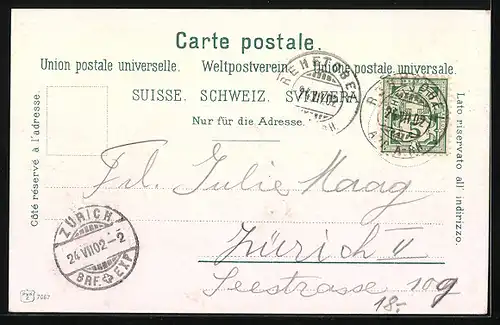 Carte postale.
Union postale universelle. Weltpostverein. Unione postale universale.
SUISSE. SCHWEIZ. SVIZZERA.
Nur für die Adresse.
Côté réservé à l'adresse.
Lato riservato all' indirizzo.
REHETOBEL
24 VII 02
REHETOBEL
24 VII 02
Frl. Julie Haag
Zürich II
Seestrasse 109
18.-
ZÜRICH
24 VII 02 - 2
BRF. EXP.
7067